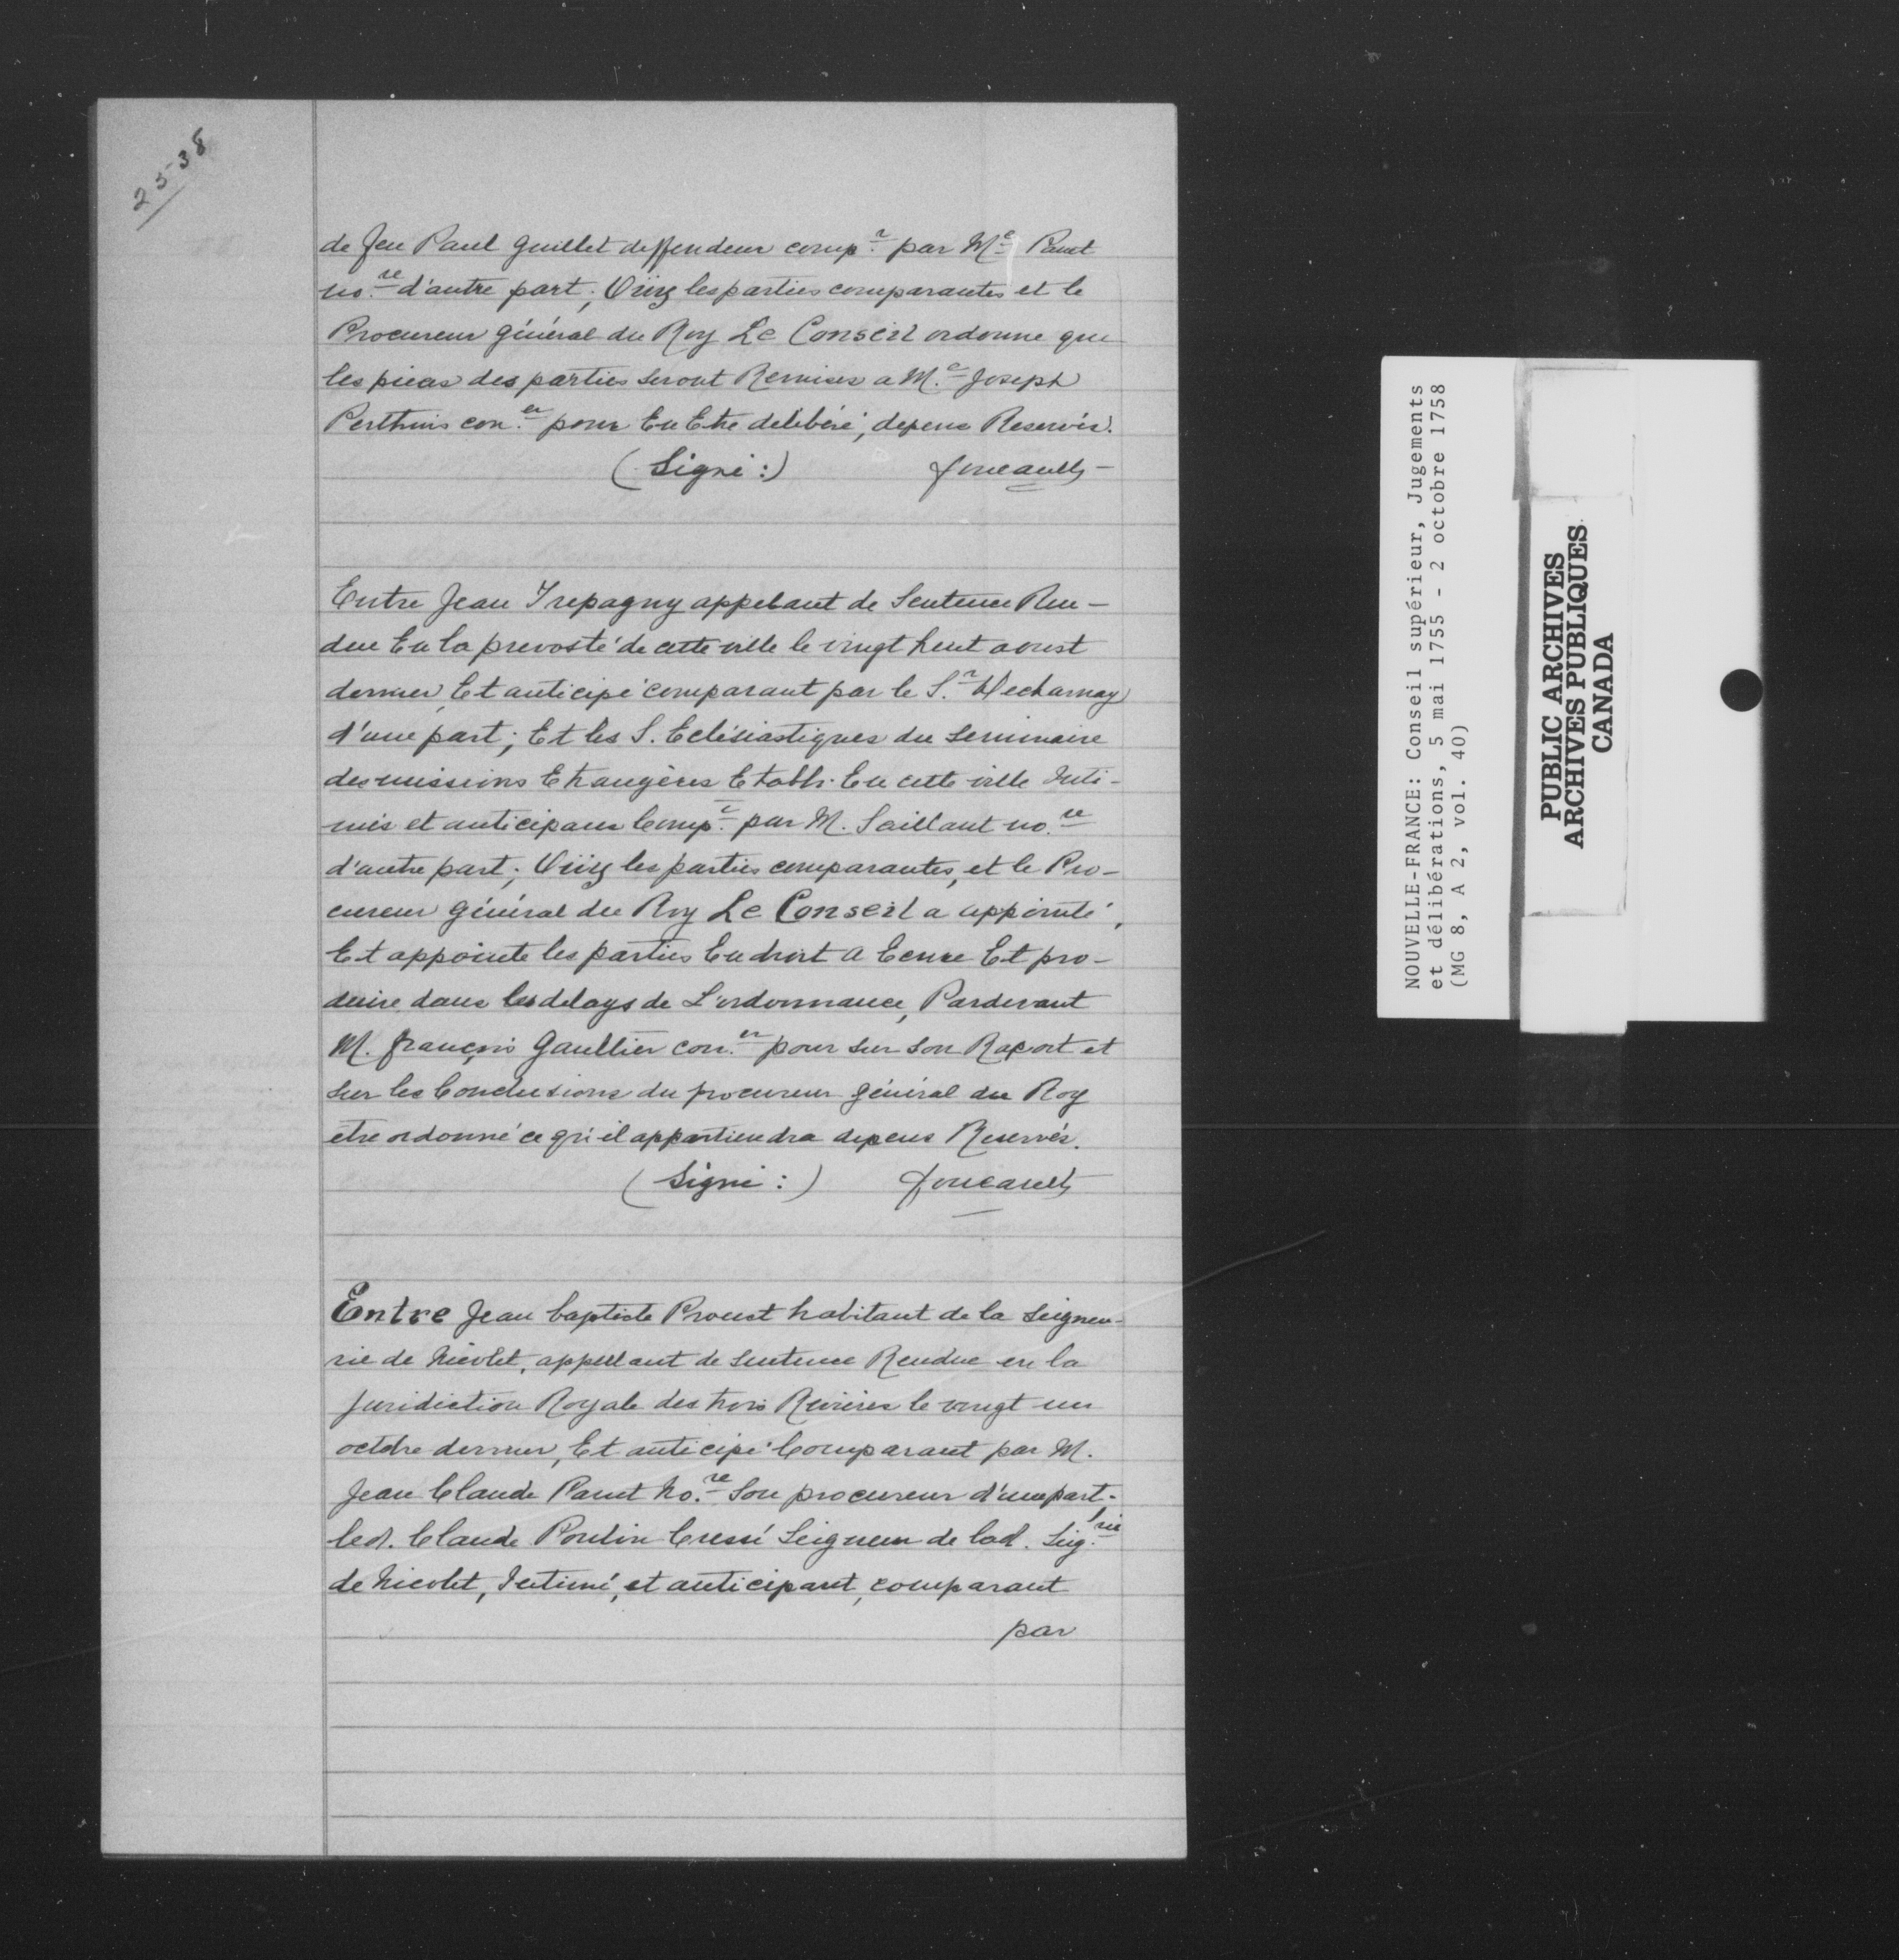 2538
de feu Paul Guillet deffendeur comp.t par Me Panet
no.re d'autre part; Ouïs les parties comparantes et le
Procureur général du Roy Le Conseil ordonne que
les pieces des parties seront Remises a M.e Joseph
Perthuis con.er pour En Etre délibéré, depens Reservés.
(Signé:) foucault
Entre Jean Trepagny appelant de Sentence Ren-
due En la prevosté de cette ville le vingt huit aoust
dernier, Et anticipé comparant par le S.r Decharnay
d'une part; Et les S. Eclésiastiques du Seminaire
des missions Etrangères Etabli En cette ville Inti-
més et anticipans Comp.t par M. Saillant no.re
d'autre part; Ouïs les parties comparantes, et le Pro-
cureur général du Roy Le Conseil a appointé,
Et appointe les parties En droit a Ecrire Et pro-
duire dans les delays de L'ordonnance, Pardevant
M. françois Gaultier con.er pour sur son Raport et
sur les Conclusions du procureur général du Roy
etre ordonné ce qu'il appartiendra depens Reservés.
(Signé:) foucault
Entre Jean baptiste Proust habitant de la Seigneu-
rie de Nicolet, appellant de Sentence Rendue en la
Juridiction Royale des trois Rivières le vingt un
octobre dernier, Et anticipé Comparant par M.
Jean Claude Panet No.re Son procureur d'une part.
led. Claude Poulin Cressé Seigneur de lad. Seig.rie
de Nicolet, Intimé, et anticipant, comparant
par
NOUVELLE-FRANCE: Conseil supérieur, Jugements
et délibérations, 5 mai 1755 - 2 octobre 1758
(MG 8, A 2, vol. 40)
PUBLIC ARCHIVES
ARCHIVES PUBLIQUES
CANADA